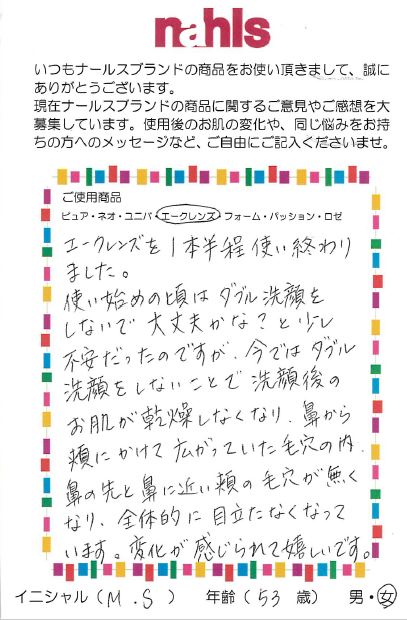 nahls
いつもナールスブランドの商品をお使い頂きまして、誠に
ありがとうございます。
現在ナールスブランドの商品に関するご意見やご感想を大
募集しています。使用後のお肌の変化や、同じ悩みをお持
ちの方へのメッセージなど、ご自由にご記入くださいませ。
ご使用商品
ピュア・ネオ・ユニバ・エークレンズ・フォーム・パッション・ロゼ
エークレンズを1本半程使い終わり
ました。
使い始めの頃はダブル洗顔を
しないで大丈夫かな?と少し
不安だったのですが、今ではダブル
洗顔をしないことで洗顔後の
お肌が乾燥しなくなり、鼻から
頬にかけて広がっていた毛穴の内、
鼻の先と鼻に近い頬の毛穴が無く
なり、全体的に目立たなくなって
います。変化が感じられて嬉しいです。
イニシャル(M.S) 年齢(53 歳) 男・女